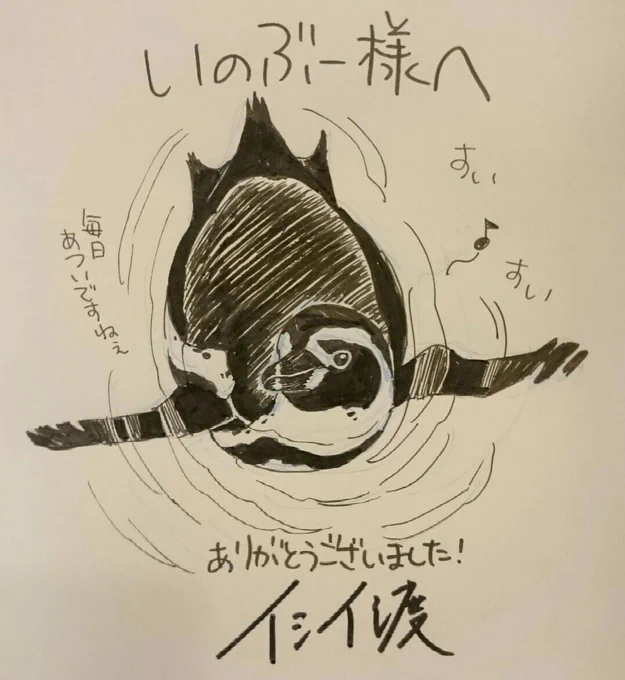 いのぶー様へ
すい
すい
毎日
あついですねぇ
ありがとうございました!
イシイ渡